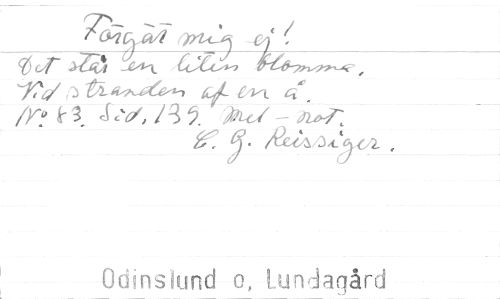 Förgät mig ej!
Det står en liten blomma.
Vid stranden af en å.
No 83. Sid. 139. Mel-not.
C. G. Reissiger.
Odinslund o, Lundagård